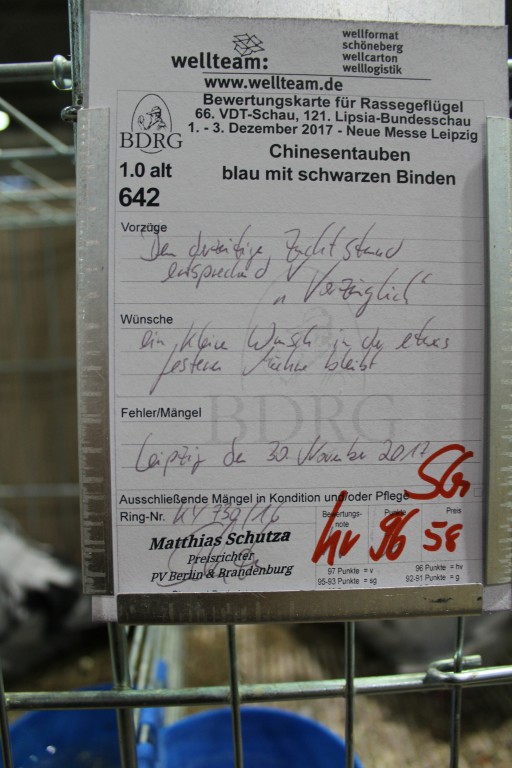 wellteam:
wellformat
schöneberg
wellcarton
welllogistik
www.wellteam.de
BDRG
Bewertungskarte für Rassegeflügel
66. VDT-Schau, 121. Lipsia-Bundesschau
1. - 3. Dezember 2017 - Neue Messe Leipzig
Chinesentauben
1.0 alt
blau mit schwarzen Binden
642
Vorzüge
Den derzeitige Zuchtstand
entsprechend
"Vorzüglich"
Wünsche
ein kleine Wunsch in der etwas
festeren bleibt
Fehler/Mängel
BDRG
Leipzig den 30. November 2017
Ausschließende Mängel in Kondition und/oder Pflege
SG
Ring-Nr.
Bewertungs-
note
Punkte
Preis
hv 96 58
Matthias Schutza
Preisrichter
PV Berlin & Brandenburg
97 Punkte = v
96 Punkte = hv
95-93 Punkte = sg
92-91 Punkte = g